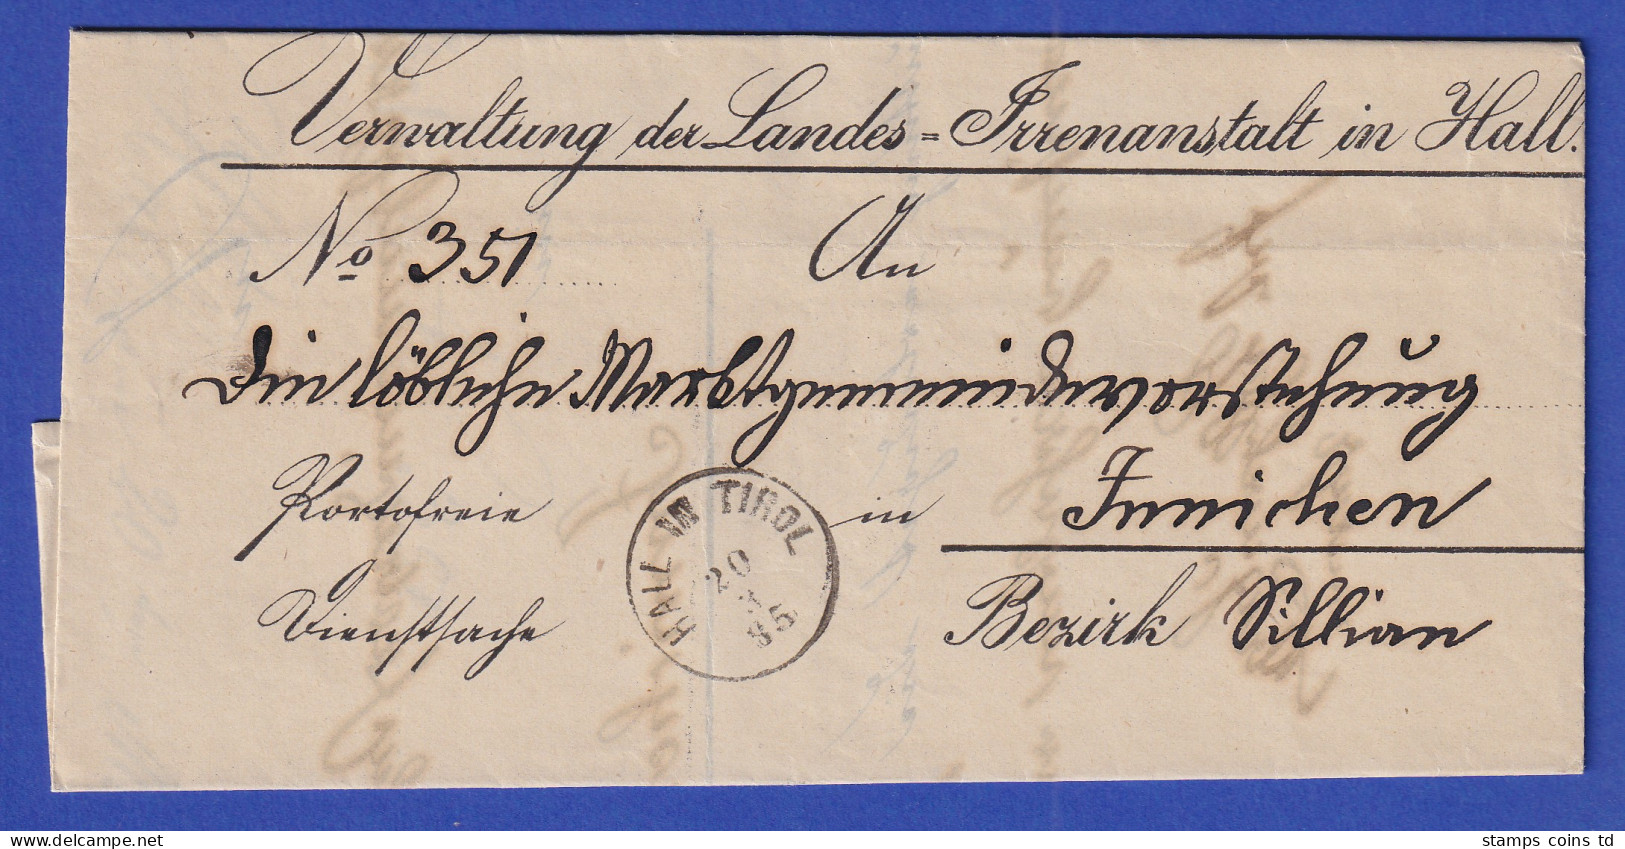 Verwaltung der Landes=Irrenanstalt in Hall.
No 351 An
Die löbliche Marktgemeindevorstehung
Portofreie in Innichen
Dienstsache Bezirk Sillian
HALL IN TIROL
20
85
stamps coins td